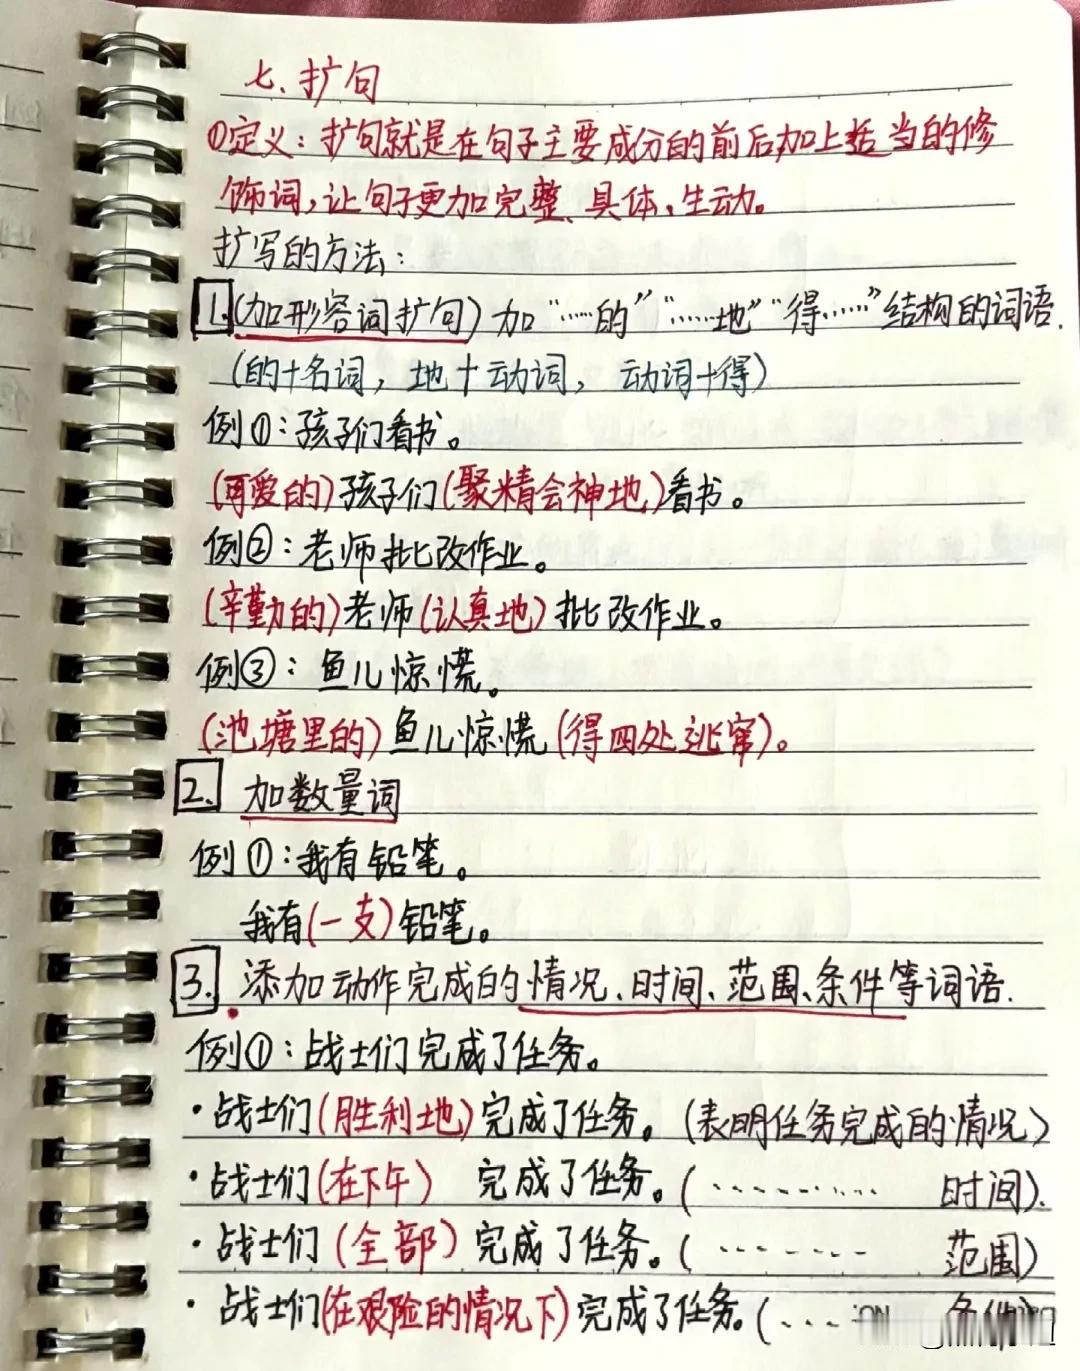 七、扩句
①定义：扩句就是在句子主要成分的前后加上适当的修
饰词，让句子更加完整、具体、生动。
扩写的方法：
1.(加形容词扩句)加“……的”“……地”“得……”结构的词语.
(的+名词，地+动词，动词+得)
例①：孩子们看书。
(可爱的)孩子们(聚精会神地)看书。
例②：老师批改作业。
(辛勤的)老师(认真地)批改作业。
例③：鱼儿惊慌。
(池塘里的)鱼儿惊慌(得四处逃窜)。
2. 加数量词
例①：我有铅笔。
我有(一支)铅笔。
3. 添加动作完成的情况、时间、范围、条件等词语.
例①：战士们完成了任务。
·战士们(胜利地)完成了任务。(表明任务完成的情况)
·战士们(在下午) 完成了任务。(……… 时间).
·战士们(全部)完成了任务。(……… 范围)
·战士们(在艰险的情况下)完成了任务。(… 条件)
NO.